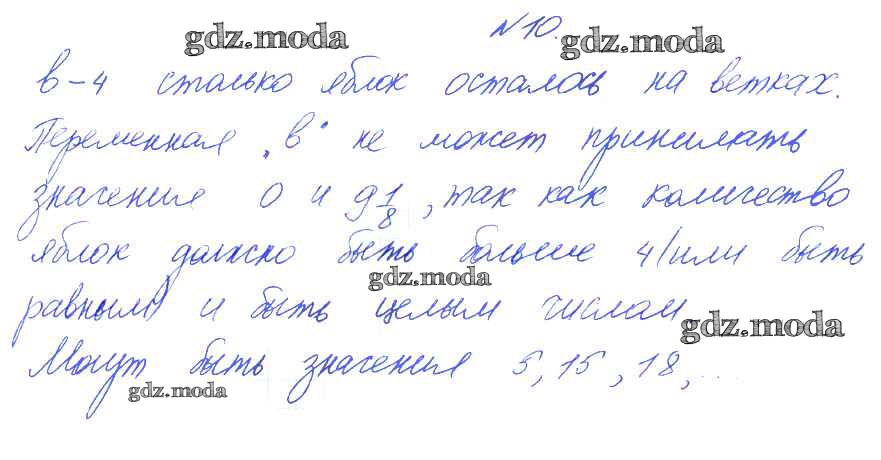 gdz.moda
№10.
gdz.moda
в-4 столько яблок осталось на ветках.
Переменная „в“ не может принимать
значения 0 и 9 1/8, так как количество
яблок должно быть больше 4 (или быть
gdz.moda
равным) и быть целым числом
gdz.moda
Могут быть значения 5, 15, 18, ...
gdz.moda